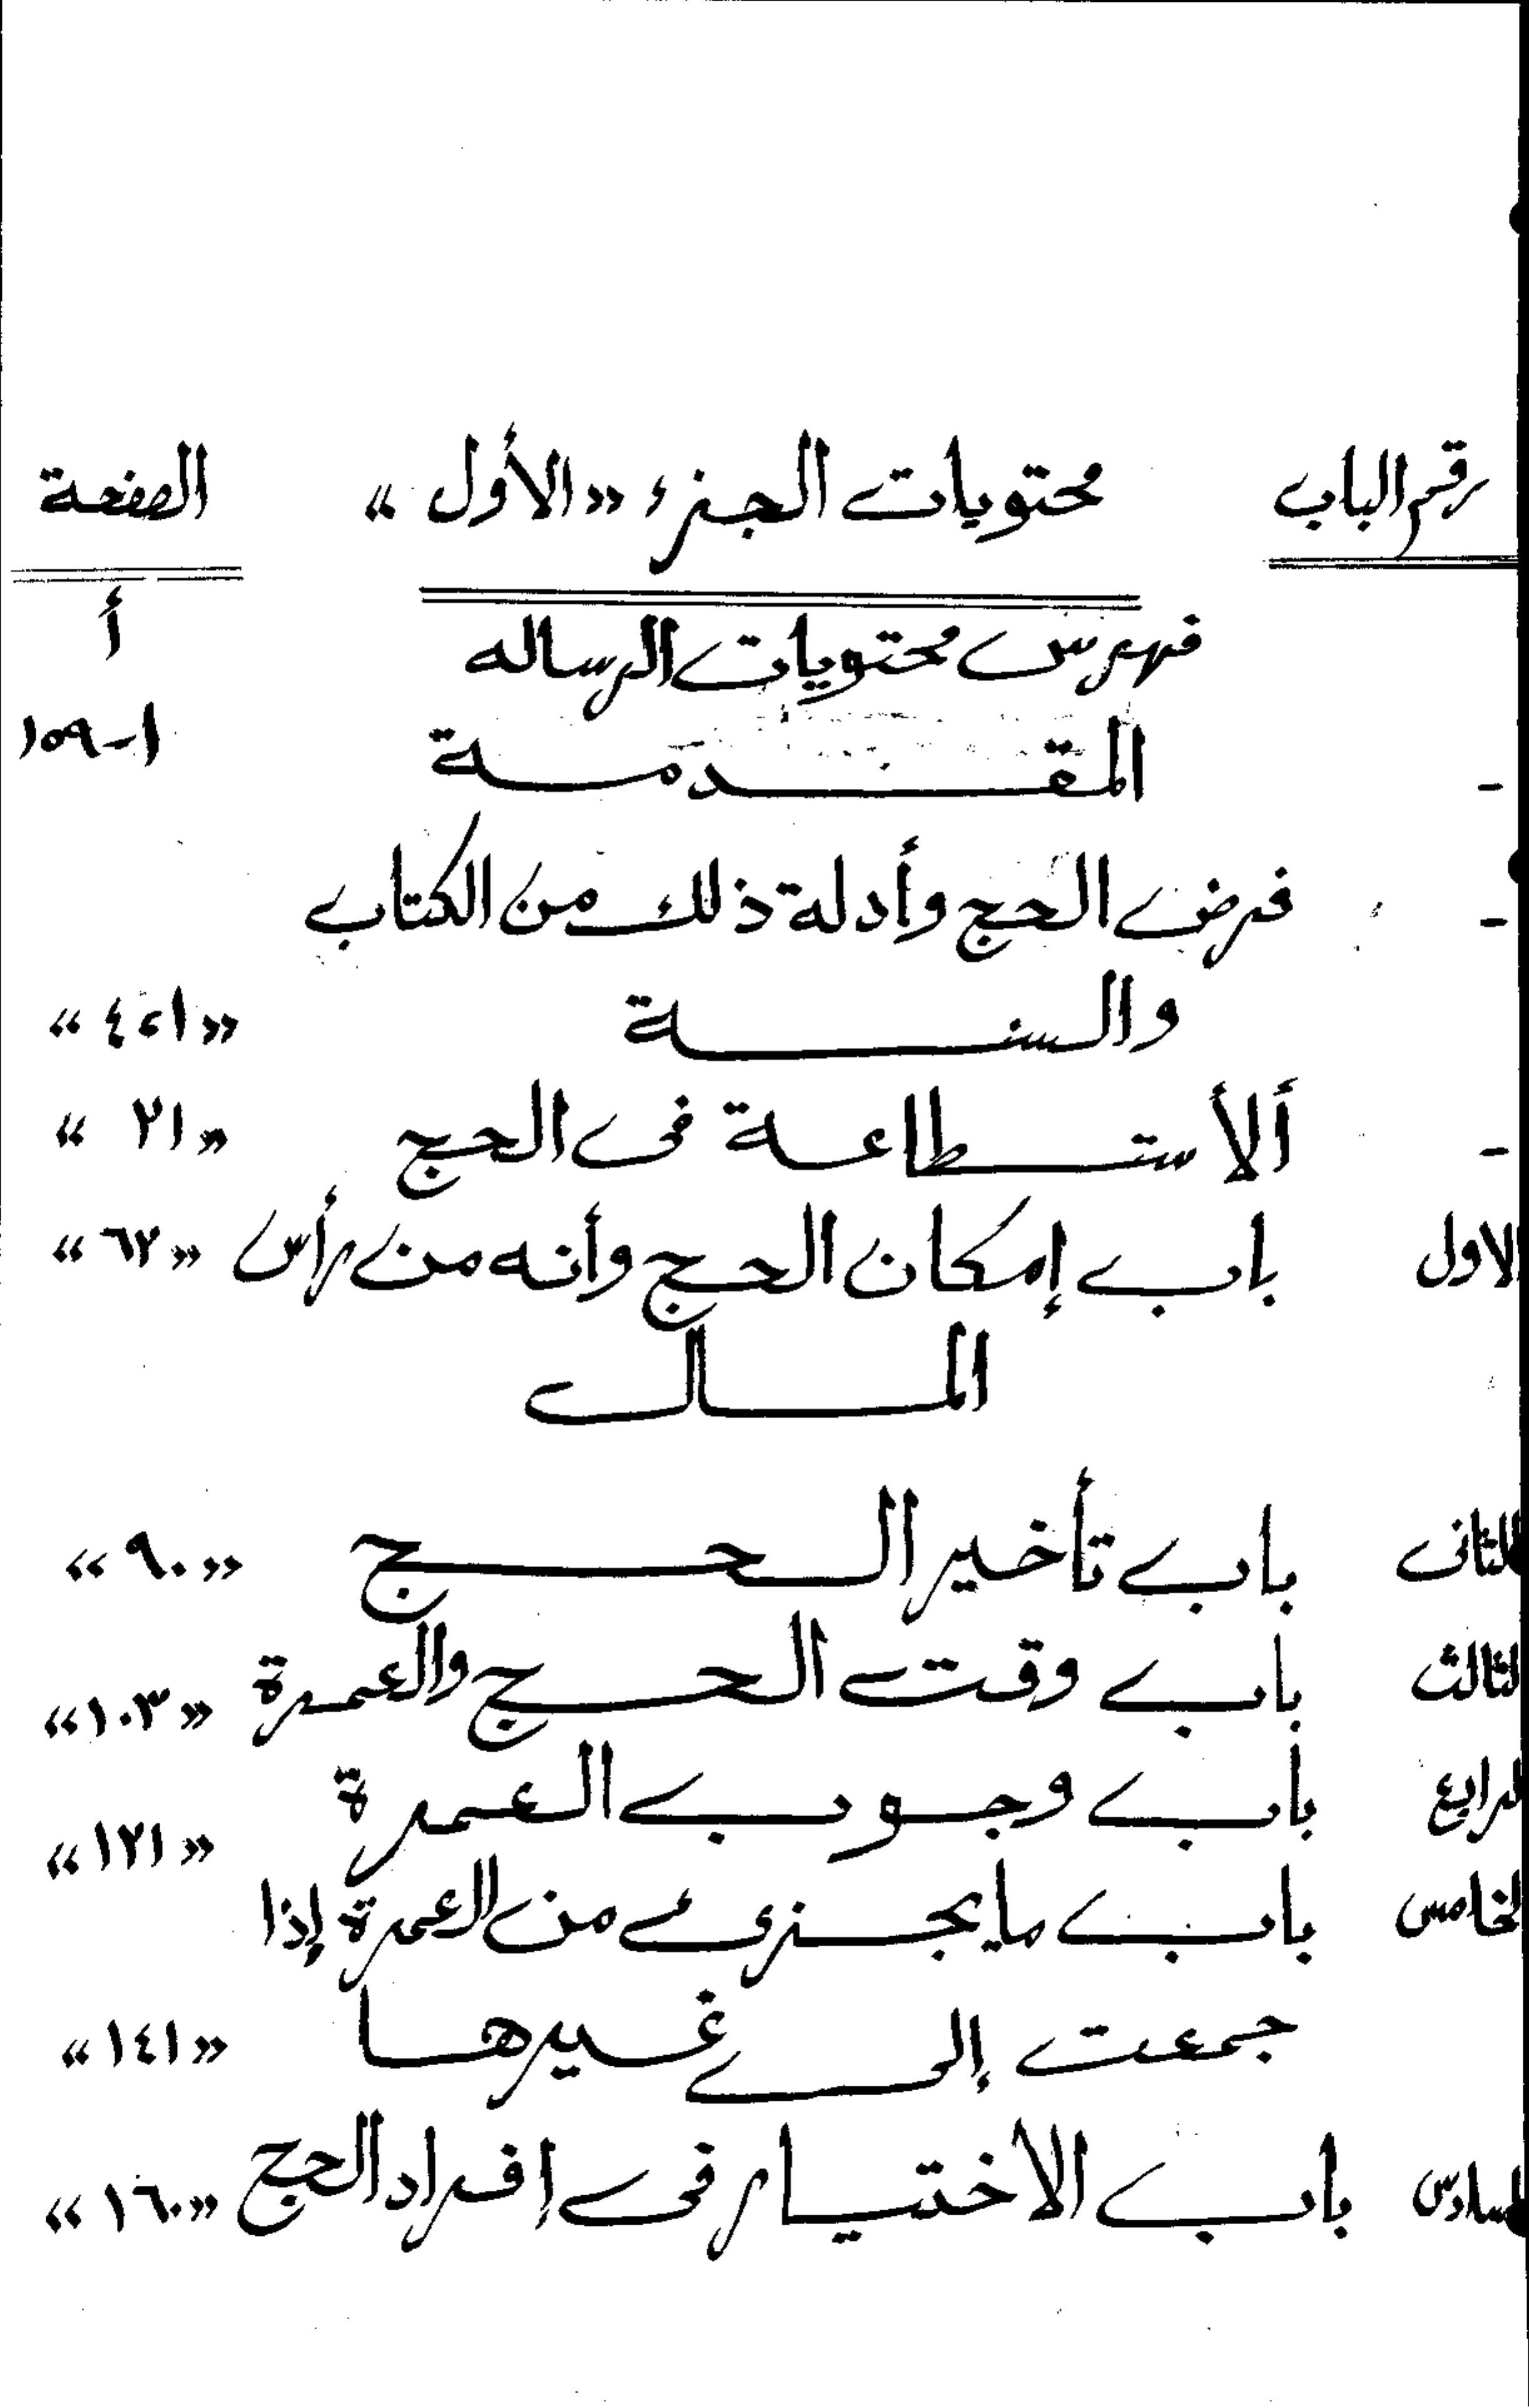 رقم الباب محتويات الجزء «الأول» الصفحة
فهرس محتويات الرساله أ
- المقدمة ١-١٥٩
- فرض الحج وأدلة ذلك من الكتاب
والسنة «١، ٤»
- ألأستطاعة فى الحج «٢١»
الاول باب إمكان الحج وأنه من رأس «٦٢»
المال
الثانى باب تأخير الحج «٩٠»
الثالث باب وقت الحج والعمرة «١٠٣»
الرابع باب وجوب العمرة «١٢١»
الخامس باب ما يجزىء من العمرة إذا
جمعت إلى غيرها «١٤١»
السادس باب الاختيار فى إفراد الحج «١٦٠»